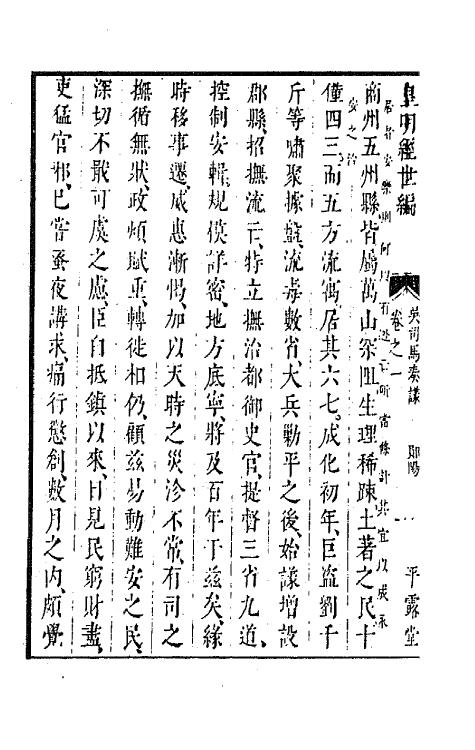 皇明經世編
吳司馬奏議
卷之一
鄖陽
一
平露堂
商州五州縣皆屬萬山深阻生理稀踈土著之民十
僅四三而五方流寓居其六七成化初年巨盜劉千
斤等嘯聚據盤流毒數省大兵勦平之後始議增設
郡縣招撫流亡特立撫治都御史官提督三省九道
控制安輯規模詳密地方底寧將及百年于茲矣緣
時移事遷威惠漸惕加以天時之災沴不常有司之
撫循無狀政煩賦重轉徙相仍顧茲易動難安之民
深切不戢可虞之慮臣自抵鎮以來日見民窮財盡
吏猛官邪已嘗蚤夜講求痛行懲創數月之內頗覺